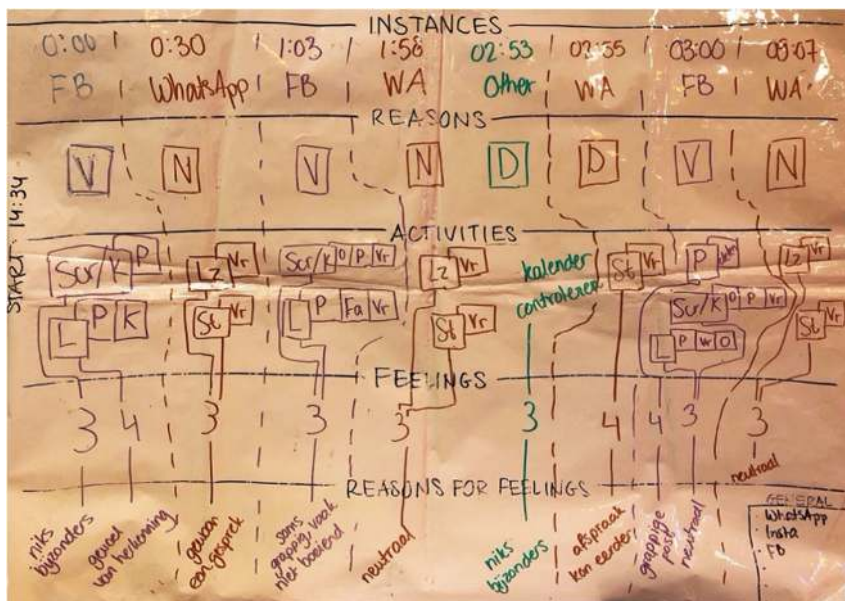 INSTANCES
0:00 0:30 1:03 1:58 02:53 03:00
FB WhatsApp FB WA Other WA FB WA
REASONS
V N V N D D V N
START 14:34
ACTIVITIES
P Vr O P Vr Vr Vr P Vr
Scr/K Lz Scr/K Lz kalender St Lz
controleren
P K Vr P Fa Vr Vr Scr/K O P Vr Vr
L St L St L P O St
FEELINGS
3 4 3 3 3 3 4 4 3 3
REASONS FOR FEELINGS
niks
bijzonders
gevoel
van herkenning
gewoon
een gesprek
soms
grappig, vaak
niet boeiend
neutraal
niks
bijzonders
afspraak
kan eerder
grappige
post
neutraal
neutraal
GENERAL
WhatsApp
Insta
FB